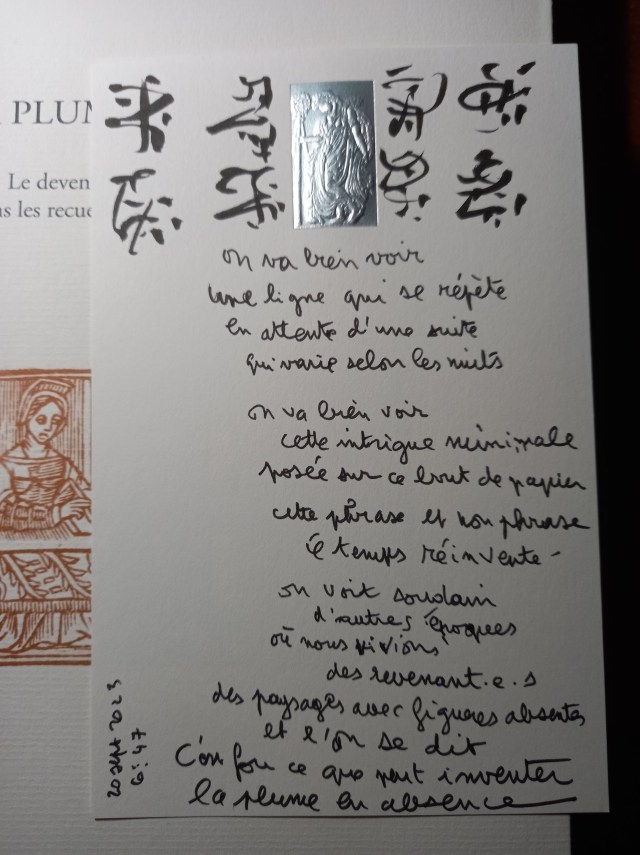 PLUM
Le deven
s les recue
on va bien voir
une ligne qui se répète
en attente d'une suite
qui varie selon les nuits
on va bien voir
cette intrigue minimale
posée sur ce bout de papier
cette phrase et non phrase
le temps réinvente -
on voit soudain
d'autres époques
où nous vivions
des revenant.e.s
des paysages avec figures absentes
et l'on se dit
C'est fou ce que peut inventer
la plume en absence
20 sept 2023
6:47